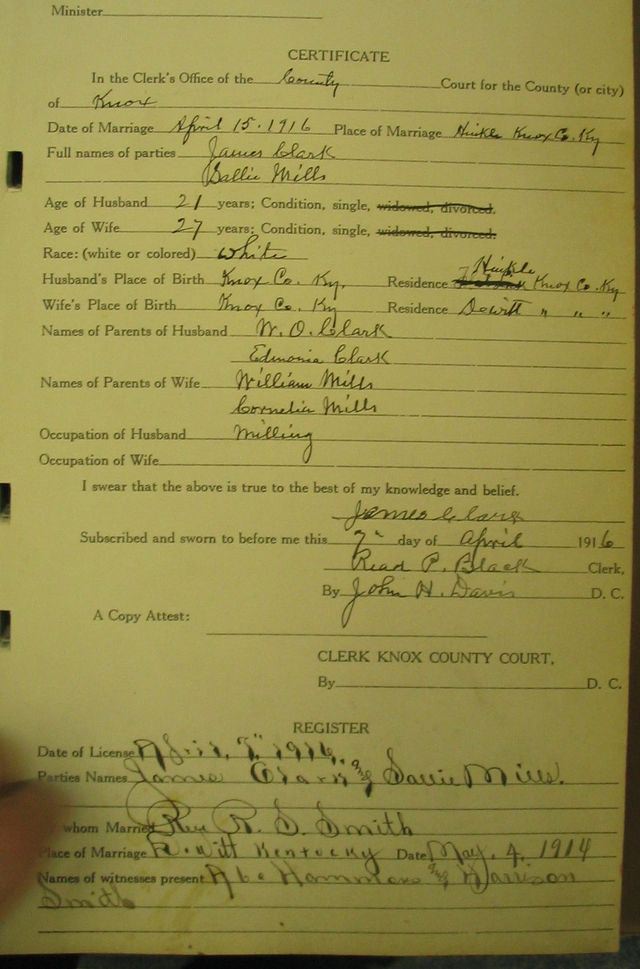 Minister
CERTIFICATE
In the Clerk's Office of the County Court for the County (or city)
of Knox
Date of Marriage April 15. 1916 Place of Marriage Hinkle Knox Co. Ky
Full names of parties James Clark
Sallie Mills
Age of Husband 21 years; Condition, single, widowed, divorced.
Age of Wife 27 years; Condition, single, widowed, divorced.
Race: (white or colored) White
Hinkle
Husband's Place of Birth Knox Co. Ky. Residence Knox Co. Ky
Wife's Place of Birth Knox Co. Ky Residence Dewitt " " "
Names of Parents of Husband W. O. Clark
Edmonia Clark
Names of Parents of Wife William Mills
Cornelia Mills
Occupation of Husband Milling
Occupation of Wife
I swear that the above is true to the best of my knowledge and belief.
James Clark
Subscribed and sworn to before me this 7" day of April 1916
Read P. Black Clerk,
By John H. Davis D. C.
A Copy Attest:
CLERK KNOX COUNTY COURT,
By D. C.
REGISTER
Date of License April, 7" 1916.
Parties Names James Clark & Sallie Mills.
whom Married Rev R. S. Smith
Place of Marriage Dewitt Kentucky Date May. 4. 1914
Names of witnesses present Abe Hammons & Harrison
Smith